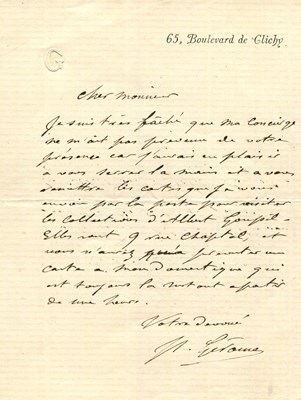 65, Boulevard de Clichy
cher monsieur
Je suis très fâché que ma concierge
ne m'ait pas prévenu de votre
présence car j'aurais eu plaisir
a vous serrer la main et a vous
remettre les cartes que je vous
envoie par la poste pour visiter
les collections d'Albert Goupil -
Elles sont 9 rue Chaptal, et
vous n'aurez qu'a présenter une
carte a mon domestique qui
est toujours la surtout a partir
de une heure.
Votre dévoué
Gérome